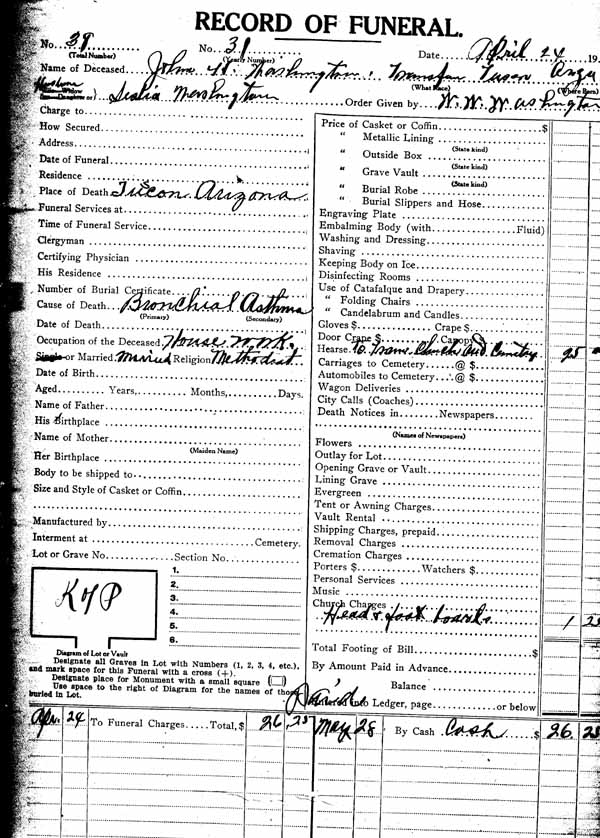 RECORD OF FUNERAL.
No. 38 No. 31 Date April 24 19
(Total Number) (Yearly Number)
Name of Deceased John H. Washington, Transfer Arza
(What Race) (Where Born)
Husband
Washington Order Given by W. W. Washington
Charge to
How Secured
Address
Date of Funeral
Residence
Place of Death Tuscon Arizona
Funeral Services at
Time of Funeral Service
Clergyman
Certifying Physician
His Residence
Number of Burial Certificate
Cause of Death Bronchial Asthma
(Primary) (Secondary)
Date of Death
Occupation of the Deceased House work.
Single or Married Married Religion Methodist
Date of Birth
Aged Years, Months, Days.
Name of Father
His Birthplace
Name of Mother
(Maiden Name)
Her Birthplace
Body to be shipped to
Size and Style of Casket or Coffin
Manufactured by
Interment at Cemetery.
Lot or Grave No. Section No.
K of P
1.
2.
3.
4.
5.
6.
Diagram of Lot or Vault
Designate all Graves in Lot with Numbers (1, 2, 3, 4, etc.),
and mark space for this Funeral with a cross (+).
Designate place for Monument with a small square
Use space to the right of Diagram for the names of those
buried in Lot.
Price of Casket or Coffin $
" Metallic Lining
(State kind)
" Outside Box
(State kind)
" Grave Vault
(State kind)
" Burial Robe
" Burial Slippers and Hose
Engraving Plate
Embalming Body (with Fluid)
Washing and Dressing
Shaving
Keeping Body on Ice
Disinfecting Rooms
Use of Catafalque and Drapery
" Folding Chairs
" Candelabrum and Candles
Gloves $ Crape $
Door Crape $ Canopy
Hearse to Train Church and Cemetery 25
Carriages to Cemetery @ $
Automobiles to Cemetery @ $
Wagon Deliveries
City Calls (Coaches)
Death Notices in Newspapers
(Names of Newspapers)
Flowers
Outlay for Lot
Opening Grave or Vault
Lining Grave
Evergreen
Tent or Awning Charges
Vault Rental
Shipping Charges, prepaid
Removal Charges
Cremation Charges
Porters $ Watchers $
Personal Services
Music
Church Charges
Head & foot boards 1 25
Total Footing of Bill $
By Amount Paid in Advance
Balance
Paid
Entered into Ledger, page or below
Apr. 24 To Funeral Charges Total, $ 26.25 May 28 By Cash Cash $ 26 25